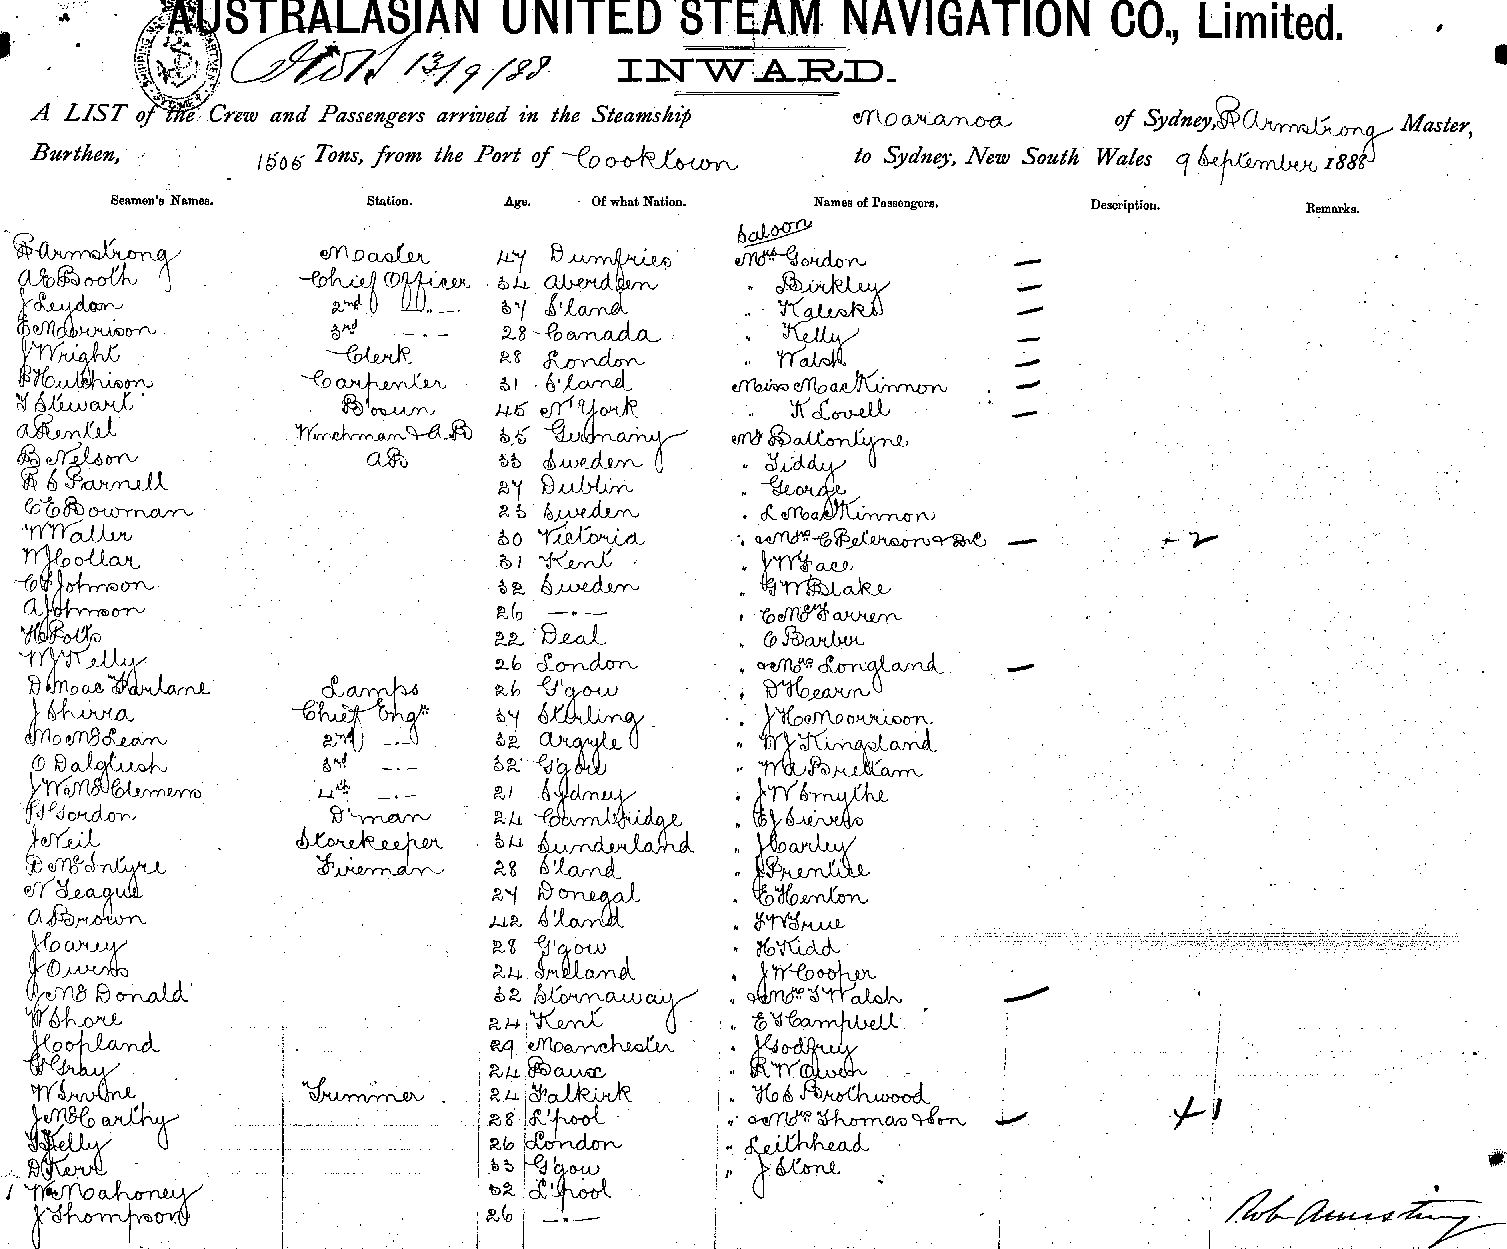 AUSTRALASIAN UNITED STEAM NAVIGATION CO., Limited.
13/9/88
INWARD.
A LIST of the Crew and Passengers arrived in the Steamship Maranoa of Sydney, R Armstrong Master,
Burthen, 1505 Tons, from the Port of Cooktown to Sydney, New South Wales 9 September 1888
Seamen's Names. Station. Age. Of what Nation. Names of Passengers. Description. Remarks.
Saloon
R Armstrong Master 47 Dumfries Mrs Gordon —
A E Booth Chief Officer 34 Aberdeen " Birkley —
J Leydon 2nd D. — 37 S'land " Kaleski —
E Morrison 3rd —"— 28 Canada " Kelly —
J Wright Clerk 28 London " Walsh —
P Hutchison Carpenter 31 S'land Miss MacKinnon —
T Stewart B'osun 45 N'York " K Lovell —
A Rentel Winchman & AB 35 Germany Mr Ballontyne
B Nelson AB 33 Sweden " Tiddy
R S Parnell 27 Dublin " George
C E Bowman 23 Sweden " L MacKinnon
W Waller 30 Victoria " & Mrs C Peterson & 2 C — + 2
W J Collar 31 Kent " J W Face
C F Johnson 32 Sweden " G W Blake
A Johnson 26 —"— " C McFarren
H Potts 22 Deal " C Barber
W J Kelly 26 London " & Mrs Longland —
D MacFarlane Lamps 26 G'gow " D Hearn
J Shirra Chief Engr 37 Stirling " J H Morrison
M McLean 2nd —"— 32 Argyle " W J Kingsland
O Dalglish 3rd —"— 32 G'gow " W A Brettam
J W McClemens 4th —"— 21 Sydney " J W Smythe
P Gordon D'man 24 Cambridge " E J Sievers
J Neil Storekeeper 34 Sunderland " J Carley
D McIntyre Fireman 28 S'land " J Prentice
N Teague 27 Donegal " E Henton
A Brown 42 S'land " F W True
J Carey 28 G'gow " H Kidd
J Owens 24 Ireland " J W Cooper
G McDonald 32 Stornaway " & Mrs T Walsh —
W Shore 24 Kent " E F Campbell
J Copland 29 Manchester " J Godfrey
G Gray 24 Baux " R W Owen
W Irvine Trimmer 24 Falkirk " H S Brothwood
J McCarthy 28 L'pool " & Mrs Thomas & Son — + 1
T Kelly 26 London " Leithhead
D Kerr 33 G'gow " J Stone
1 W Mahoney 32 L'pool
J Thompson 26 —"—
Rob Armstrong